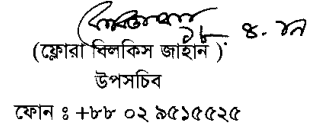 ১৮. ৪. ১১
(ফ্লোরা বিলকিস জাহান)
উপসচিব
ফোন ঃ +৮৮ ০২ ৯৫১৫৫২৫